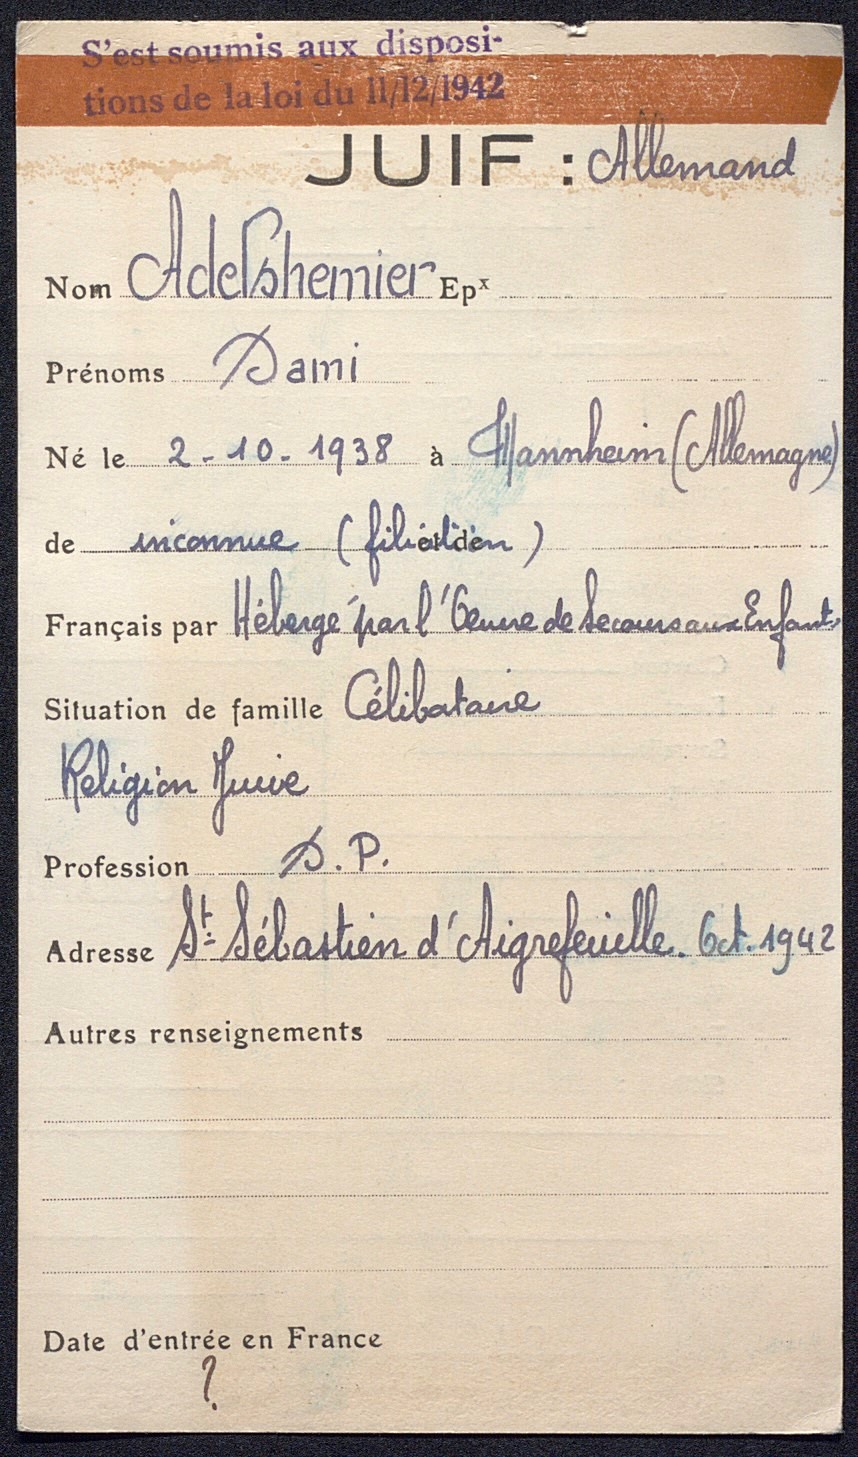 S'est soumis aux disposi-
tions de la loi du 11/12/1942
JUIF : Allemand
Nom Adelshemier Epx
Prénoms Dami
Né le 2-10-1938 à Mannheim (Allemagne)
de inconnue (filiation) et de
Français par Hébergé par l'Oeuvre de Secours aux Enfants
Situation de famille Célibataire
Religion Juive
Profession S.P.
Adresse St Sébastien d'Aigrefeuille. Oct. 1942
Autres renseignements
Date d'entrée en France
?